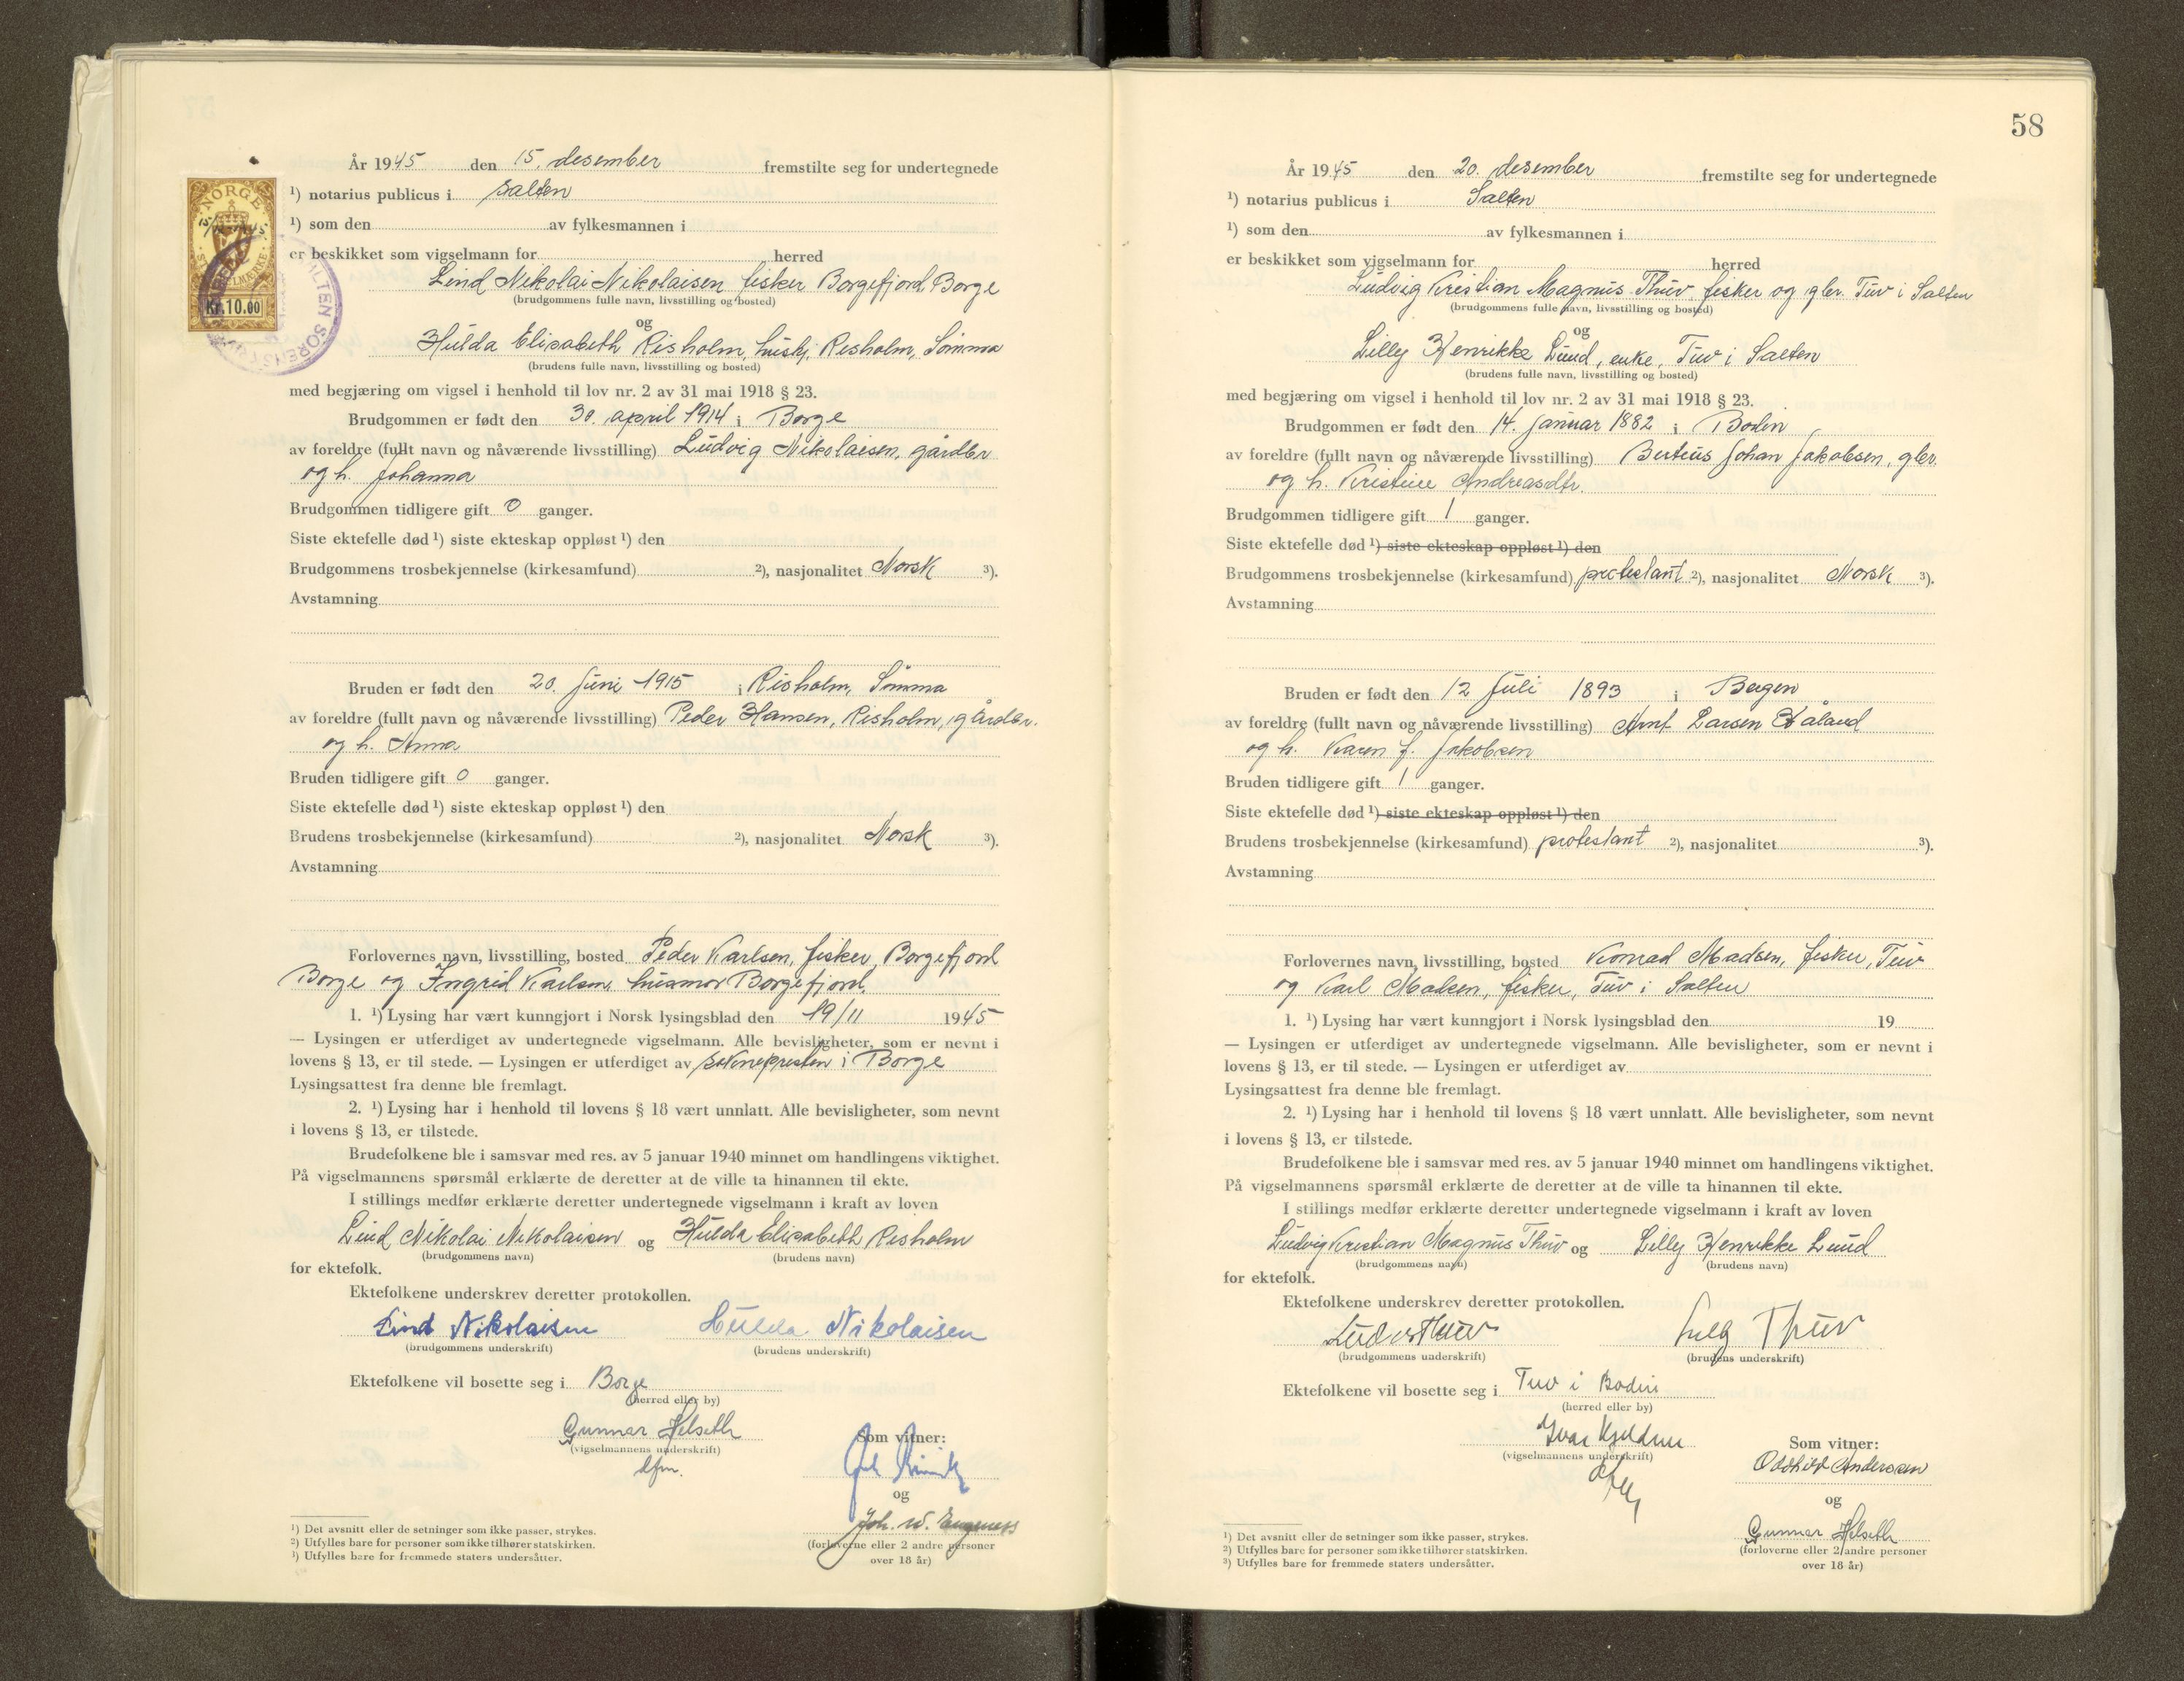 År 1945 den 15. desember fremstilte seg for undertegnede
¹) notarius publicus i Salten
¹) som den av fylkesmannen i
er beskikket som vigselmann for herred
Lind Nikolai Nikolaisen fisker Borgefjord, Borge
(brudgommens fulle navn, livsstilling og bosted)
og
Hulda Elisabeth Risholm, hushj. Risholm, Sömna
(brudens fulle navn, livsstilling og bosted)
med begjæring om vigsel i henhold til lov nr. 2 av 31 mai 1918 § 23.
Brudgommen er født den 30. april 1914 i Borge
av foreldre (fullt navn og nåværende livsstilling) Ludvig Nikolaisen, gårdbr
og h. Johanna
Brudgommen tidligere gift 0 ganger.
Siste ektefelle død ¹) siste ekteskap oppløst ¹) den
Brudgommens trosbekjennelse (kirkesamfund) ²), nasjonalitet Norsk ³).
Avstamning
Bruden er født den 20. juni 1915 i Risholm, Sömna
av foreldre (fullt navn og nåværende livsstilling) Peder Hansen, Risholm, gårdbr.
og h. Anna
Bruden tidligere gift 0 ganger.
Siste ektefelle død ¹) siste ekteskap oppløst ¹) den
Brudens trosbekjennelse (kirkesamfund) ²), nasjonalitet Norsk ³).
Avstamning
Forlovernes navn, livsstilling, bosted Peder Karlsen, fisker, Borgefjord
Borge og Ingrid Karlsen, husmor Borgefjord.
1. ¹) Lysing har vært kunngjort i Norsk lysingsblad den 19/11 1945
— Lysingen er utferdiget av undertegnede vigselmann. Alle bevisligheter, som er nevnt i
lovens § 13, er til stede. — Lysingen er utferdiget av soknepresten i Borge
Lysingsattest fra denne ble fremlagt.
2. ¹) Lysing har i henhold til lovens § 18 vært unnlatt. Alle bevisligheter, som nevnt
i lovens § 13, er tilstede.
Brudefolkene ble i samsvar med res. av 5 januar 1940 minnet om handlingens viktighet.
På vigselmannens spørsmål erklærte de deretter at de ville ta hinannen til ekte.
I stillings medfør erklærte deretter undertegnede vigselmann i kraft av loven
Lind Nikolai Nikolaisen og Hulda Elisabeth Risholm
(brudgommens navn) (brudens navn)
for ektefolk.
Ektefolkene underskrev deretter protokollen.
Lind Nikolaisen Hulda Nikolaisen
(brudgommens underskrift) (brudens underskrift)
Ektefolkene vil bosette seg i Borge
(herred eller by)
Gunnar Helseth
(vigselmannens underskrift)
dfm.
Som vitner:
og
Joh. W.
(forloverne eller 2 andre personer
over 18 år)
¹) Det avsnitt eller de setninger som ikke passer, strykes.
²) Utfylles bare for personer som ikke tilhører statskirken.
³) Utfylles bare for fremmede staters undersåtter.
NORGE
Kr.10.00
58
År 1945 den 20. desember fremstilte seg for undertegnede
¹) notarius publicus i Salten
¹) som den av fylkesmannen i
er beskikket som vigselmann for herred
Ludvig Kristian Magnus Thuv, fisker og gbr. Tuv i Salten
(brudgommens fulle navn, livsstilling og bosted)
og
Lilly Henrikke Lund, enke, Tuv i Salten
(brudens fulle navn, livsstilling og bosted)
med begjæring om vigsel i henhold til lov nr. 2 av 31 mai 1918 § 23.
Brudgommen er født den 14. januar 1882 i Bodin
av foreldre (fullt navn og nåværende livsstilling) Johan Jakobsen, gbr.
og h. Kristine Andreasdtr.
Brudgommen tidligere gift 1 ganger.
Siste ektefelle død ¹) siste ekteskap oppløst ¹) den
Brudgommens trosbekjennelse (kirkesamfund) protestant ²), nasjonalitet Norsk ³).
Avstamning
Bruden er født den 12 juli 1893 i Bergen
av foreldre (fullt navn og nåværende livsstilling) Arnt Larsen Håland
og h. Karen f. Jakobsen
Bruden tidligere gift 1 ganger.
Siste ektefelle død ¹) siste ekteskap oppløst ¹) den
Brudens trosbekjennelse (kirkesamfund) protestant ²), nasjonalitet ³).
Avstamning
Forlovernes navn, livsstilling, bosted Konrad Madsen, fisker, Tuv
og Karl Madsen, fisker, Tuv i Salten
1. ¹) Lysing har vært kunngjort i Norsk lysingsblad den 19
— Lysingen er utferdiget av undertegnede vigselmann. Alle bevisligheter, som er nevnt i
lovens § 13, er til stede. — Lysingen er utferdiget av
Lysingsattest fra denne ble fremlagt.
2. ¹) Lysing har i henhold til lovens § 18 vært unnlatt. Alle bevisligheter, som nevnt
i lovens § 13, er tilstede.
Brudefolkene ble i samsvar med res. av 5 januar 1940 minnet om handlingens viktighet.
På vigselmannens spørsmål erklærte de deretter at de ville ta hinannen til ekte.
I stillings medfør erklærte deretter undertegnede vigselmann i kraft av loven
Ludvig Kristian Magnus Thuv og Lilly Henrikke Lund
(brudgommens navn) (brudens navn)
for ektefolk.
Ektefolkene underskrev deretter protokollen.
Ludv Thuv Lilly Thuv
(brudgommens underskrift) (brudens underskrift)
Ektefolkene vil bosette seg i Tuv i Bodin
(herred eller by)
Ivar Kjeldsen
(vigselmannens underskrift)
Som vitner:
Oddhild Andersen
og
Gunnar Helseth
(forloverne eller 2 andre personer
over 18 år)
¹) Det avsnitt eller de setninger som ikke passer, strykes.
²) Utfylles bare for personer som ikke tilhører statskirken.
³) Utfylles bare for fremmede staters undersåtter.